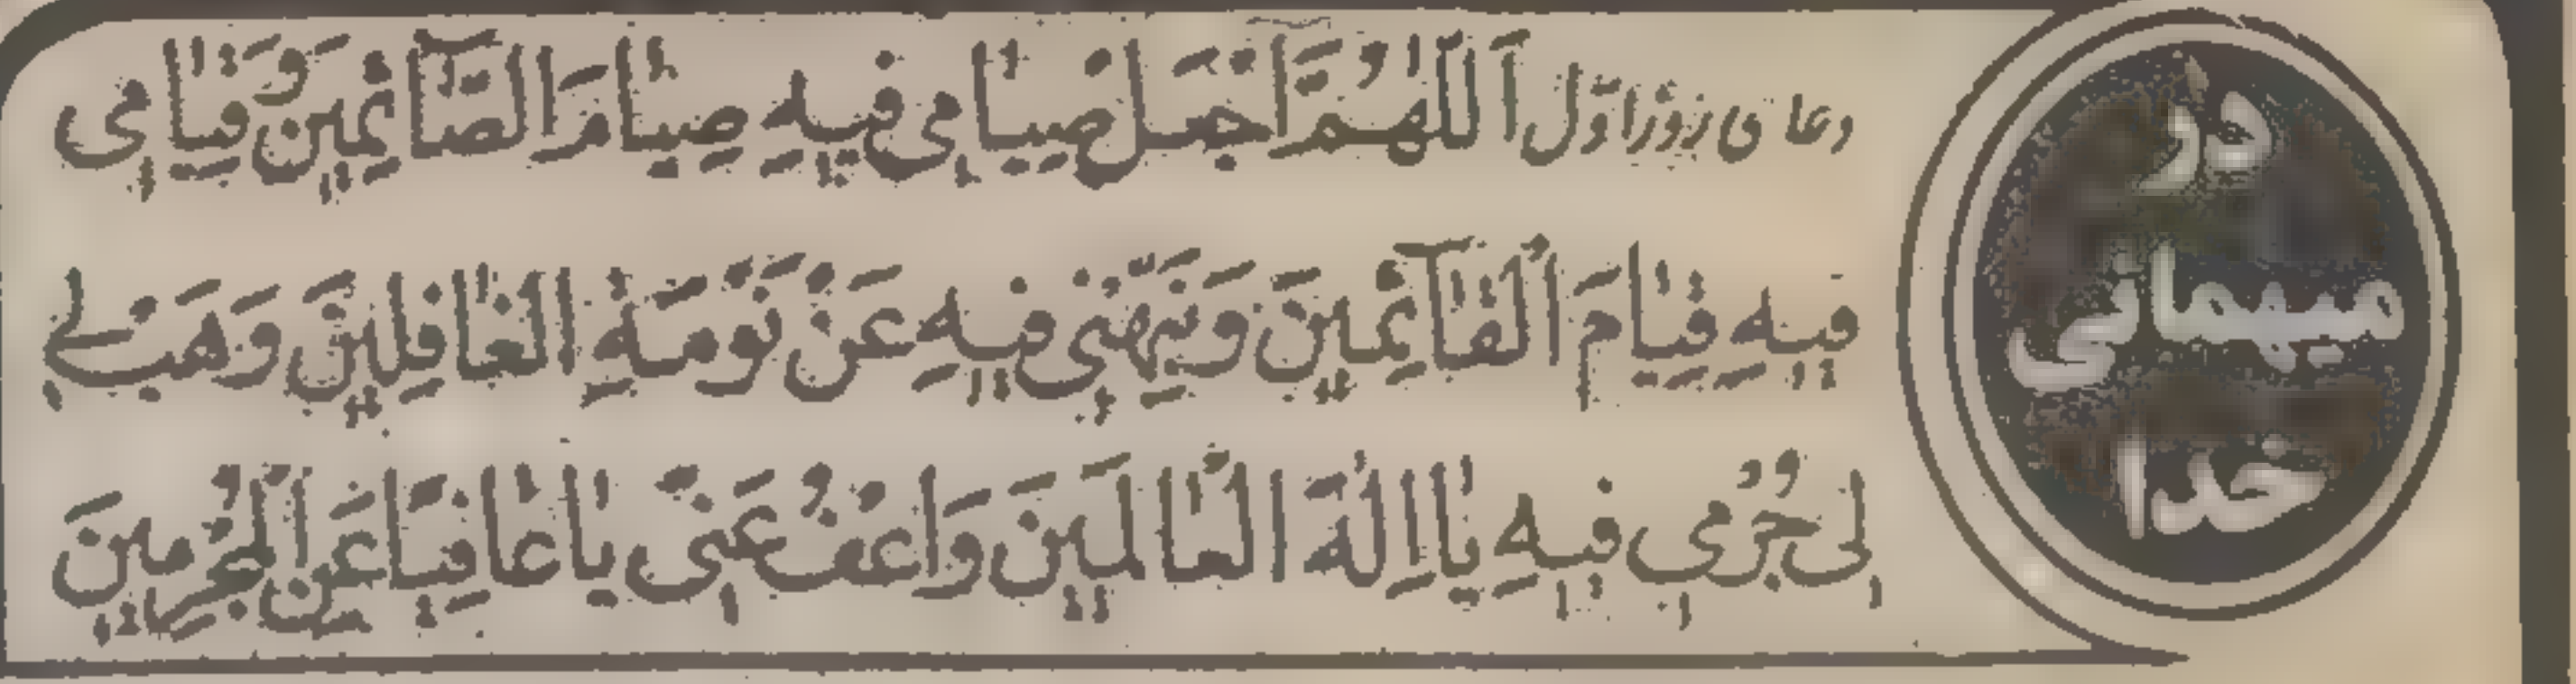 در
میهمانی
خدا
دعای روز اول اَللّٰهُمَّ اجْعَلْ صِیٰامی فیهِ صِیٰامَ الصّٰآئِمینَ وَقِیٰامی
فیهِ قِیٰامَ الْقٰآئِمینَ وَنَبِّهْنی فیهِ عَنْ نَوْمَةِ الْغٰافِلینَ وَهَبْ لی
لی جُرْمی فیهِ یٰا اِلٰهَ الْعٰالَمینَ وَاعْفُ عَنّی یٰا عٰافِیًا عَنِ الْمُجْرِمینَ